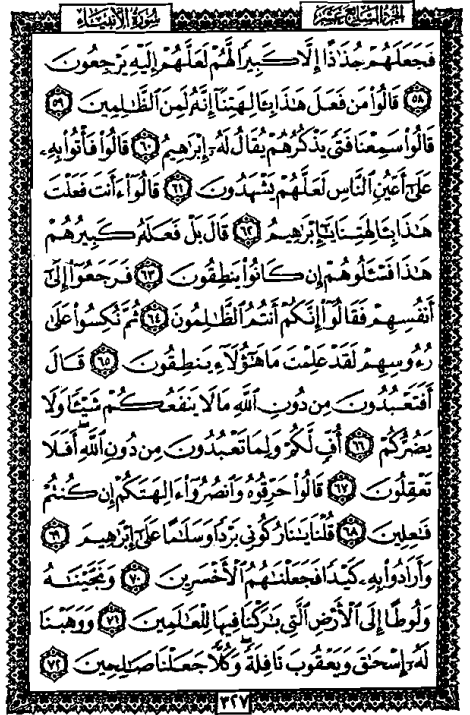 الجزء السابع عشر
سورة الأنبياء
فَجَعَلَهُمْ جُذَاذًا إِلَّا كَبِيرًا لَّهُمْ لَعَلَّهُمْ إِلَيْهِ يَرْجِعُونَ
٥٨ قَالُوا۟ مَن فَعَلَ هَـٰذَا بِـَٔالِهَتِنَآ إِنَّهُۥ لَمِنَ ٱلظَّـٰلِمِينَ ٥٩
قَالُوا۟ سَمِعْنَا فَتًى يَذْكُرُهُمْ يُقَالُ لَهُۥٓ إِبْرَٰهِيمُ ٦٠ قَالُوا۟ فَأْتُوا۟ بِهِۦ
عَلَىٰٓ أَعْيُنِ ٱلنَّاسِ لَعَلَّهُمْ يَشْهَدُونَ ٦١ قَالُوٓا۟ ءَأَنتَ فَعَلْتَ
هَـٰذَا بِـَٔالِهَتِنَا يَـٰٓإِبْرَٰهِيمُ ٦٢ قَالَ بَلْ فَعَلَهُۥ كَبِيرُهُمْ
هَـٰذَا فَسْـَٔلُوهُمْ إِن كَانُوا۟ يَنطِقُونَ ٦٣ فَرَجَعُوٓا۟ إِلَىٰٓ
أَنفُسِهِمْ فَقَالُوٓا۟ إِنَّكُمْ أَنتُمُ ٱلظَّـٰلِمُونَ ٦٤ ثُمَّ نُكِسُوا۟ عَلَىٰ
رُءُوسِهِمْ لَقَدْ عَلِمْتَ مَا هَـٰٓؤُلَآءِ يَنطِقُونَ ٦٥ قَالَ
أَفَتَعْبُدُونَ مِن دُونِ ٱللَّهِ مَا لَا يَنفَعُكُمْ شَيْـًٔا وَلَا
يَضُرُّكُمْ ٦٦ أُفٍّ لَّكُمْ وَلِمَا تَعْبُدُونَ مِن دُونِ ٱللَّهِ ۖ أَفَلَا
تَعْقِلُونَ ٦٧ قَالُوا۟ حَرِّقُوهُ وَٱنصُرُوٓا۟ ءَالِهَتَكُمْ إِن كُنتُمْ
فَـٰعِلِينَ ٦٨ قُلْنَا يَـٰنَارُ كُونِى بَرْدًا وَسَلَـٰمًا عَلَىٰٓ إِبْرَٰهِيمَ ٦٩
وَأَرَادُوا۟ بِهِۦ كَيْدًا فَجَعَلْنَـٰهُمُ ٱلْأَخْسَرِينَ ٧٠ وَنَجَّيْنَـٰهُ
وَلُوطًا إِلَى ٱلْأَرْضِ ٱلَّتِى بَـٰرَكْنَا فِيهَا لِلْعَـٰلَمِينَ ٧١ وَوَهَبْنَا
لَهُۥٓ إِسْحَـٰقَ وَيَعْقُوبَ نَافِلَةً ۖ وَكُلًّا جَعَلْنَا صَـٰلِحِينَ ٧٢
٣٢٧